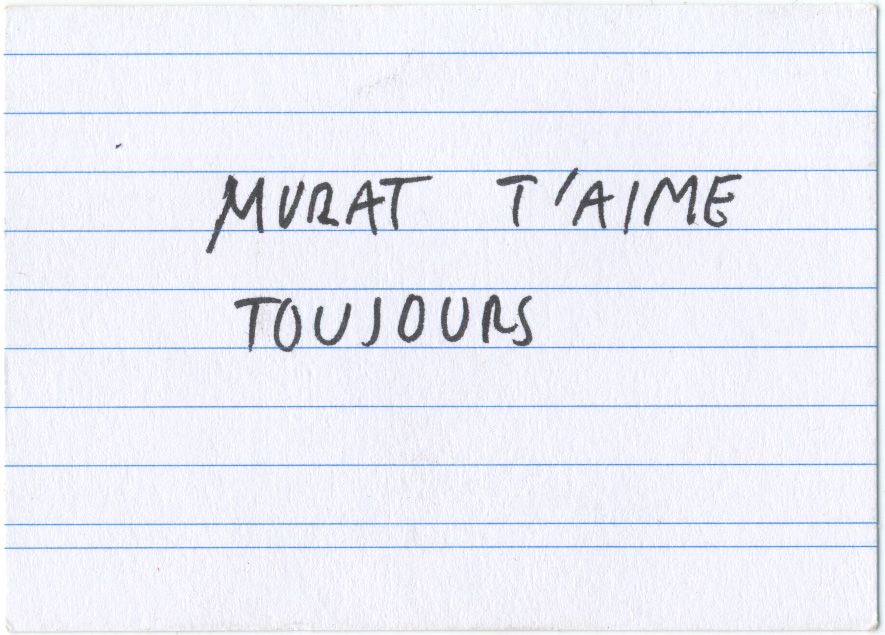 MURAT T'AIME
TOUJOURS